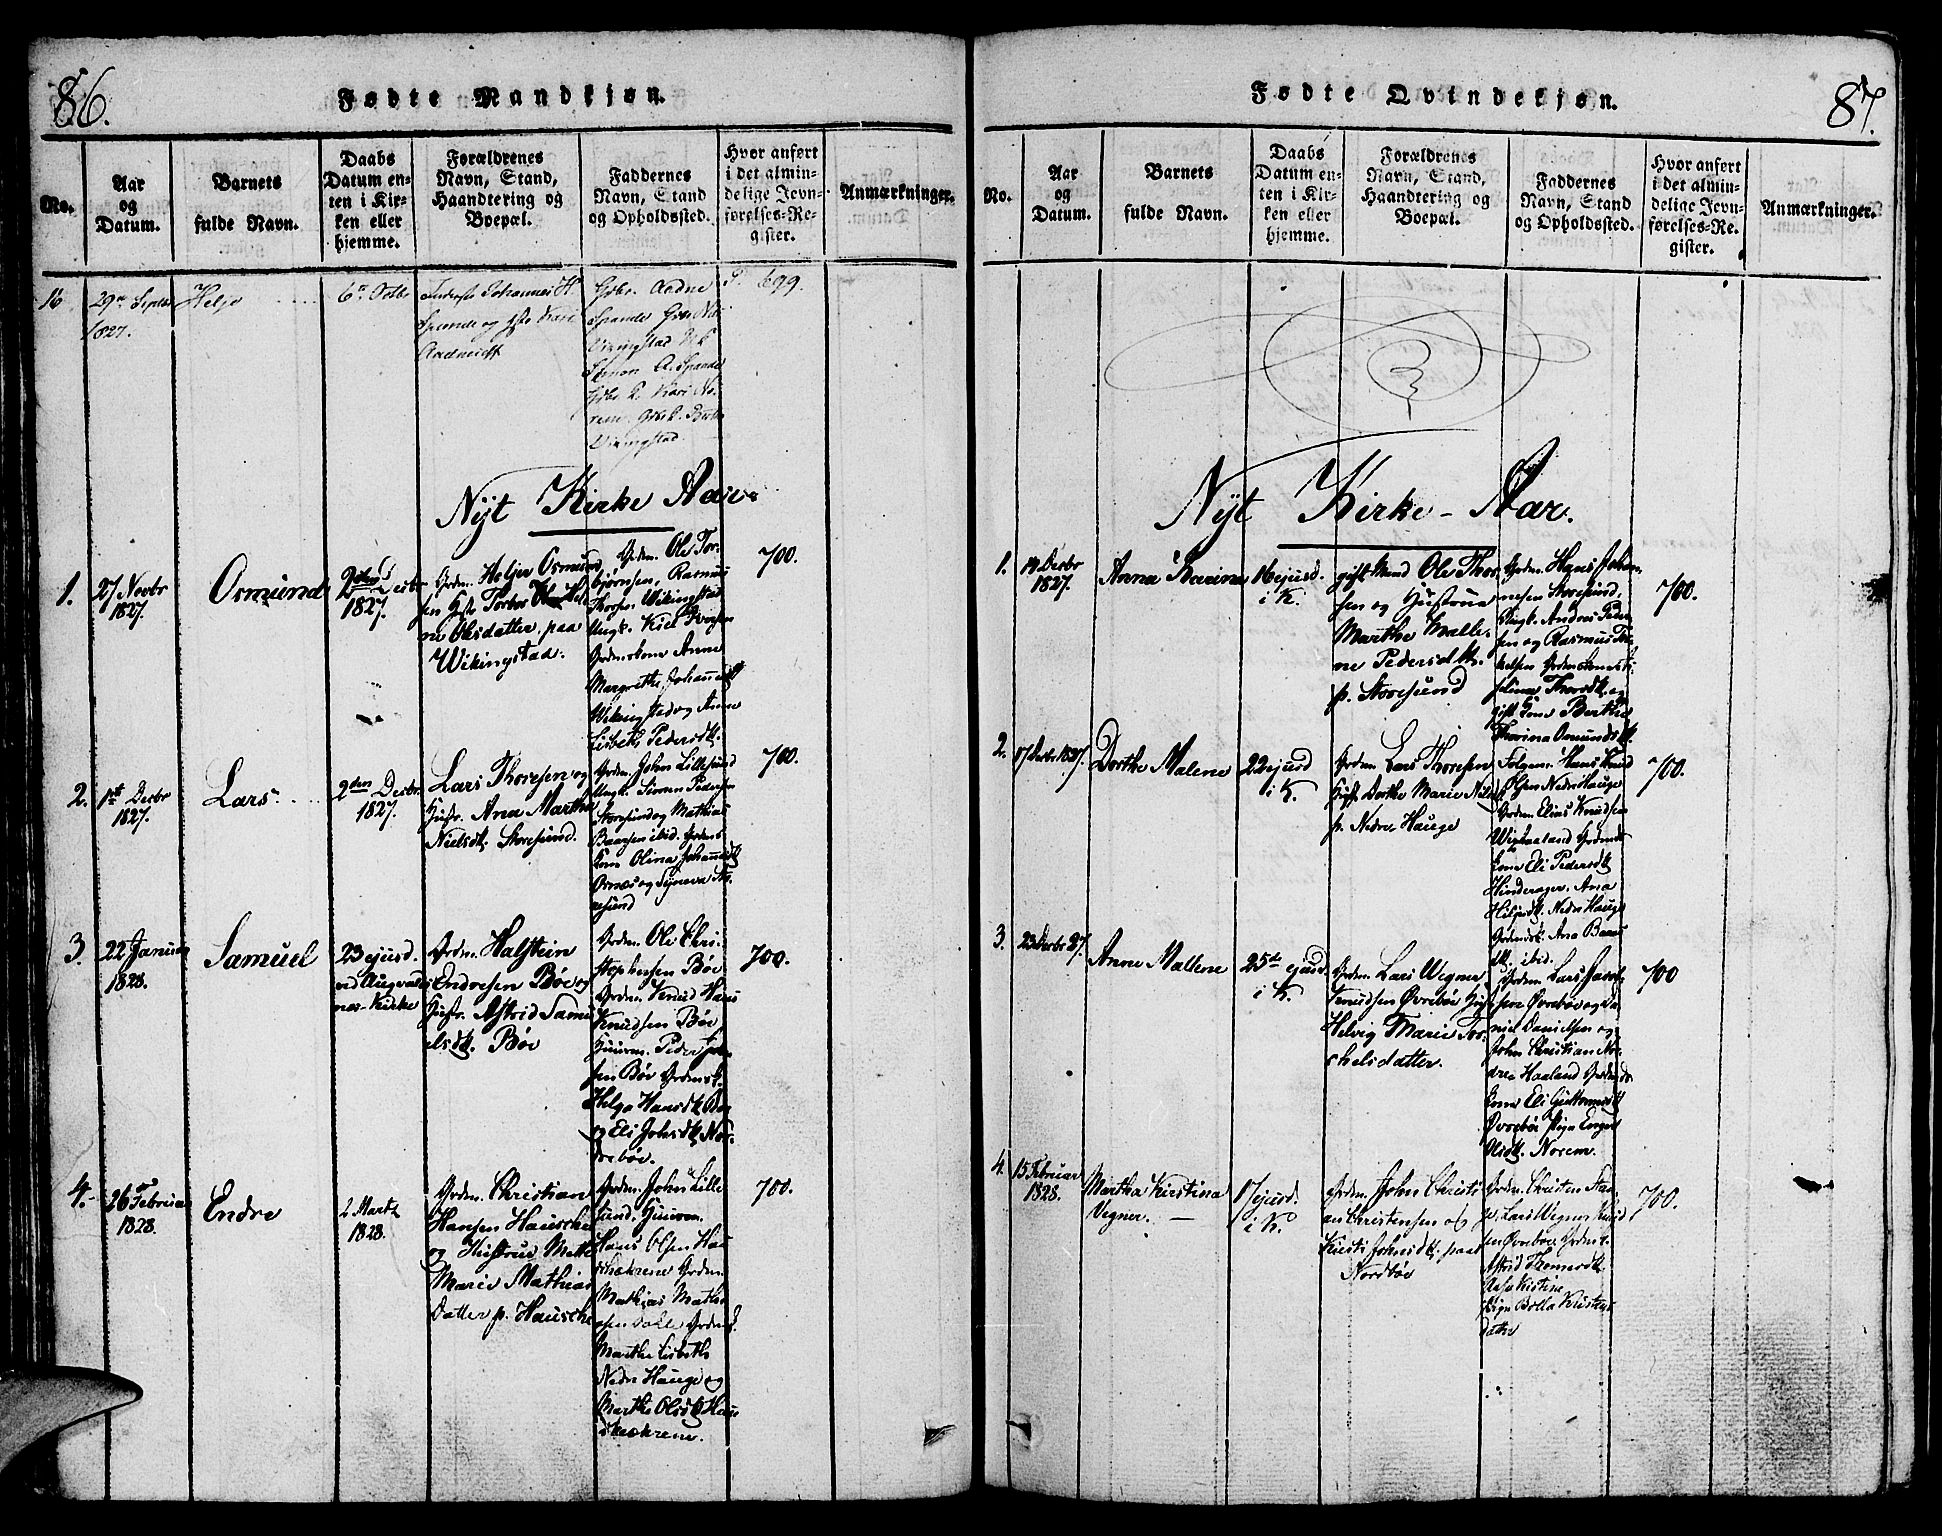 86.
Fødte Mandkjøn.
No.
Aar
og
Datum.
Barnets
fulde Navn.
Daabs
Datum en-
ten i Kir-
ken eller
hjemme.
Forældrenes
Navn, Stand,
Haandtering og
Boepæl.
Faddernes
Navn, Stand
og Opholdssted.
Hvor anført
i det almin-
delige Jevn-
førelses-Re-
gister.
Anmærkninger.
16
29de Septbr
1827.
Helje
6te Octbr
Johannes H.
Spande og Kari
Gdbr. Aadne
Spande Gdbr
Vikingstad
Simon A. Spande
Kari No-
rem.
Vikingstad
P. 699.
Nyt Kirke Aar.
1.
27 Novbr
1827.
Osmund
2den Decbr
1827.
Grdm. Heljer Osmund
sen Torbor Hele
ne Olsdatter paa
Wikingstad.
Grdm. Ole Tor-
bjørnsen, Rasmus
Thorsen Wikingstad
Ungk. Kiel Iversen
Grdmskone Anne
Margrethe Johannesdtt
Wikingstad og Anne
Lisbeth Pedersdtt.
700.
2.
1st Decbr
1827.
Lars
2den Decbr.
1827.
Lars Thoresen og
Hustr. Ana Martha
Nielsdtt. Storesund.
Grdm. John Lillesund
Ungk. Simon Pedersen
Storesund og Mathias
Baardsen ibid. Grdms
kone Olina Johannesdtt
Osnæs og Synneva Sto-
resund
700.
3.
22 Januar
1828.
Samuel
23 ejusd.
ved Augvalds
næs Kirke
Grdm. Halstein
Endresen Bøe og
Hustr. Astrid Samu
elsdtt. Bøe
Grdm. Ole Chri-
stophersen Bøe
Grdm. Knud Hans
Knudsen Bøe
Huusm. Peder John
sen Bøe Grdmsk.
Helga Hansdtt Bøe
og Eli Johsdtt Nor-
drebøe.
700.
4.
26 Februar
1828.
Endre
2 Marts
1828.
Grdm. Christian
Hansen Hauske
og Hustrue Mette
Marie Mathias
Datter p. Hauske
Grdm. John Lille
sund. Huusm.
Hans Olsen Hau
skeækrene Grdm.
Mathias Mathi
esen Dahle Grdmsk.
Marthe Lisbeth
Nedre Hauge og
Marthe Olsdtt Hau
skeækrene.
700.
87.
Fødte Qvindekjøn.
No.
Aar
og
Datum.
Barnets
fulde Navn.
Daabs
Datum en-
ten i Kir-
ken eller
hjemme.
Forældrenes
Navn, Stand,
Haandtering og
Boepæl.
Faddernes
Navn, Stand
og Opholdssted.
Hvor anført
i det almin-
delige Jevn-
førelses-Re-
gister.
Anmærkninger.
Nyt Kirke-Aar.
1.
14 Decbr
1827.
Anna Karina
16 ejusd.
i K.
gift Mand Ole Thor
sen og Hustrue
Marthe Malle-
ne Pedersdtt.
p. Storesund
Grdm. Hans Johan-
nesen Storesund.
Ungk. Andres Peder
sen og Rasmus
Thorsdtt. og
gift Kone Berthe
Thorina Osmundsdtt
700.
2.
17 Decbr 1827.
Dorthe Malene
22 ejusd
i K.
Grdm Lars Thoresen
Hust. Dorthe Marie Niels
p. Nedre Hauge
Hans Knud
Olsen Nedre Hauge
Grdm. Elias Knudsen
Grdms
kone Eli Pedersdtt
Hinderager. Ana
Heljesdtt. Nedre Hauge
Ana Baars
dtt. ibid.
700.
3.
23 Decbr 27.
Anne Mallene
25de ejusd.
i K.
Grdm. Lars Wegner
Knudsen Øvrebøe Hust
Helvig Marie Tor-
chelsdatter.
Grdm. Lars Jacob
sen Øvrebøe og Da
niel Danielsen og
John Christian No-
dre Haaland Grdms
kone Eli Guttormsdtt
Øvrebøe Pige Enger
Olsdtt. Norem.
700
4.
15 Februar
1828.
Martha Kirstina
Vegner.
17 ejusd.
i K.
Grdm. John Christi
an Christensen og
Kirsti Johnsdtt. paa
Nordbøe
Grdm. Christen Staa
Lars Wegner Knud
sen Øvrebøe Grdms
Astrid Thomasdtt
Kistine
Pige Bolla Kirstens
datter
700.